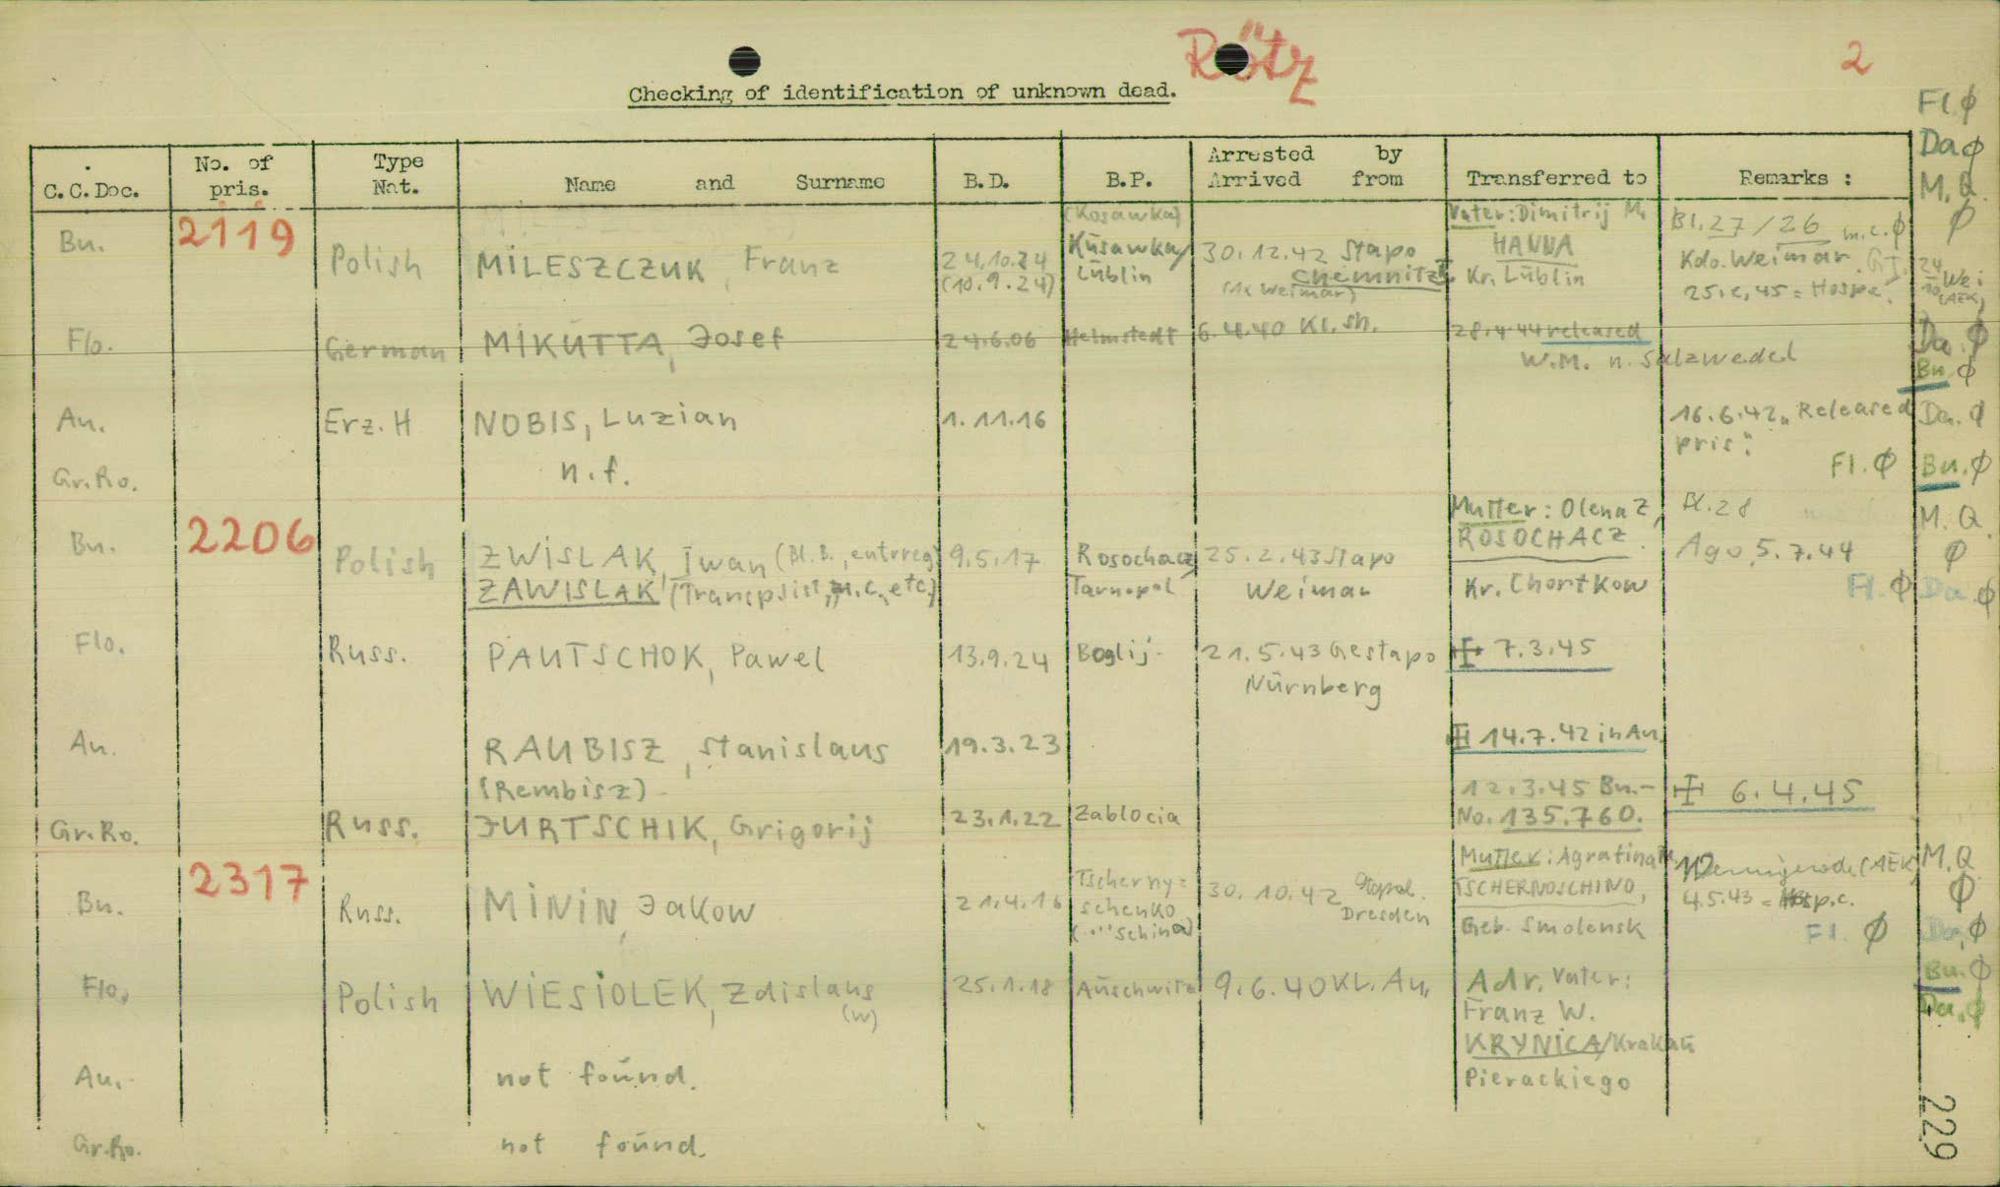 Rötz
2
Checking of identification of unknown dead.
Fl. ϕ
Da ϕ
M. Q.
ϕ
C.C.Doc.
No. of pris.
Type Nat.
Name and Surname
B.D.
B.P.
Arrested by
Arrived from
Transferred to
Remarks :
Bu. 2119 Polish MILESZCZUK, Franz
24.10.24
(10.9.24)
(Kosawka)
Kusawka/
Lüblin
30.12.42 Stapo
Chemnitz
(1x Weimar)
Vater: Dimitrij M.
HANNA
Kr. Lüblin
Bl. 27/26 m.c. ϕ
Kdo. Weimar
Wei
(AEK)
Flo. German MIKUTTA, Josef 24.6.06 Helmstedt 6.4.40 Kl. Sh. 28.4.44 released
W.M. n. Salzwedel
Da. ϕ
Bu. ϕ
Au. Erz. H NOBIS, Luzian 1.11.16
16.6.42 „Released
pris."
Da. ϕ
Gr.Ro. n.f.
Fl. ϕ
Bu. ϕ
Bu. 2206 Polish ZWISLAK, Iwan (Bl. B.,
ZAWISLAK
9.5.17
Rosochacz
Tarnopol
25.2.43 Stapo
Weimar
Mutter: Olena Z,
ROSOCHACZ
Kr. Chortkow
Bl. 28
Ago, 5.7.44
M. Q.
ϕ
Fl. ϕ
Da. ϕ
Flo. Russ. PAUTSCHOK, Pawel 13.9.24 Boglij- 21.5.43 Gestapo
Nürnberg
7.3.45
Au. RAUBISZ, Stanislaus 19.3.23 14.7.42 in Au.
(Rembisz)
Gr.Ro. Russ. JURTSCHIK, Grigorij 23.1.22 Zablocia
12.3.45 Bu.-
No. 135.760.
6.4.45
Bu. 2317 Russ. MININ, Jakow 21.4.16
Tscherny=
schenko
30.10.42
Dresden
Mutter: Agrafina
TSCHERNOSCHINO,
Geb. Smolensk
Wernigerode (AEK)
4.5.43 = Hosp.c.
Fl. ϕ
M. Q.
ϕ
Da. ϕ
Flo. Polish WIESIOLEK, Zdislaus
(W)
25.1.18 Auschwitz 9.6.40 KL. Au.
Adr. Vater:
Franz W.
KRYNICA/Krakau
Pierackiego
Bu. ϕ
Da. ϕ
Au. not found.
Gr.Ro. not found.
229